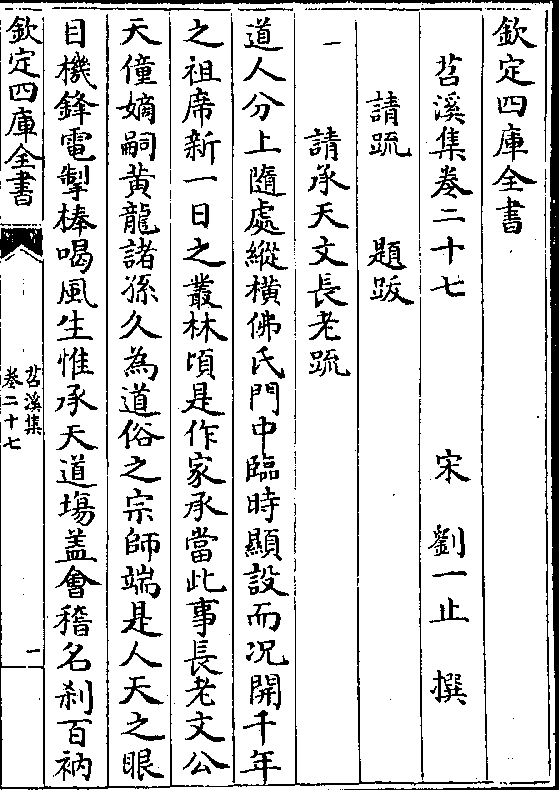 欽定四庫全書
苕溪集卷二十七 宋 劉一止 撰
請䟽 題跋
請承天文長老䟽
道人分上隨處縱橫佛氏門中臨時顯設而况開千年
之祖席新一日之叢林頃是作家承當此事長老文公
天僮嫡嗣黄龍諸孫久為道俗之宗師端是人天之眼
目機鋒電掣棒喝風生惟承天道塲盖會稽名刹百衲
欽定四庫全書
苕溪集
卷二十七
一